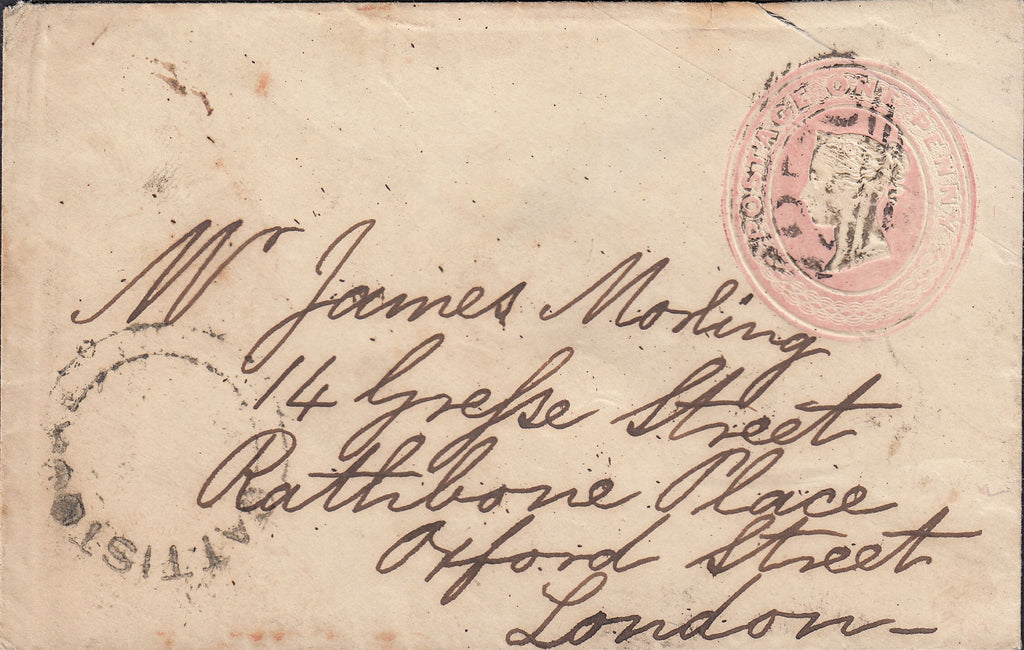 POSTAGE ONE PENNY
Mr James Morling
14 Gresse Street
Rathbone Place
Oxford Street
London